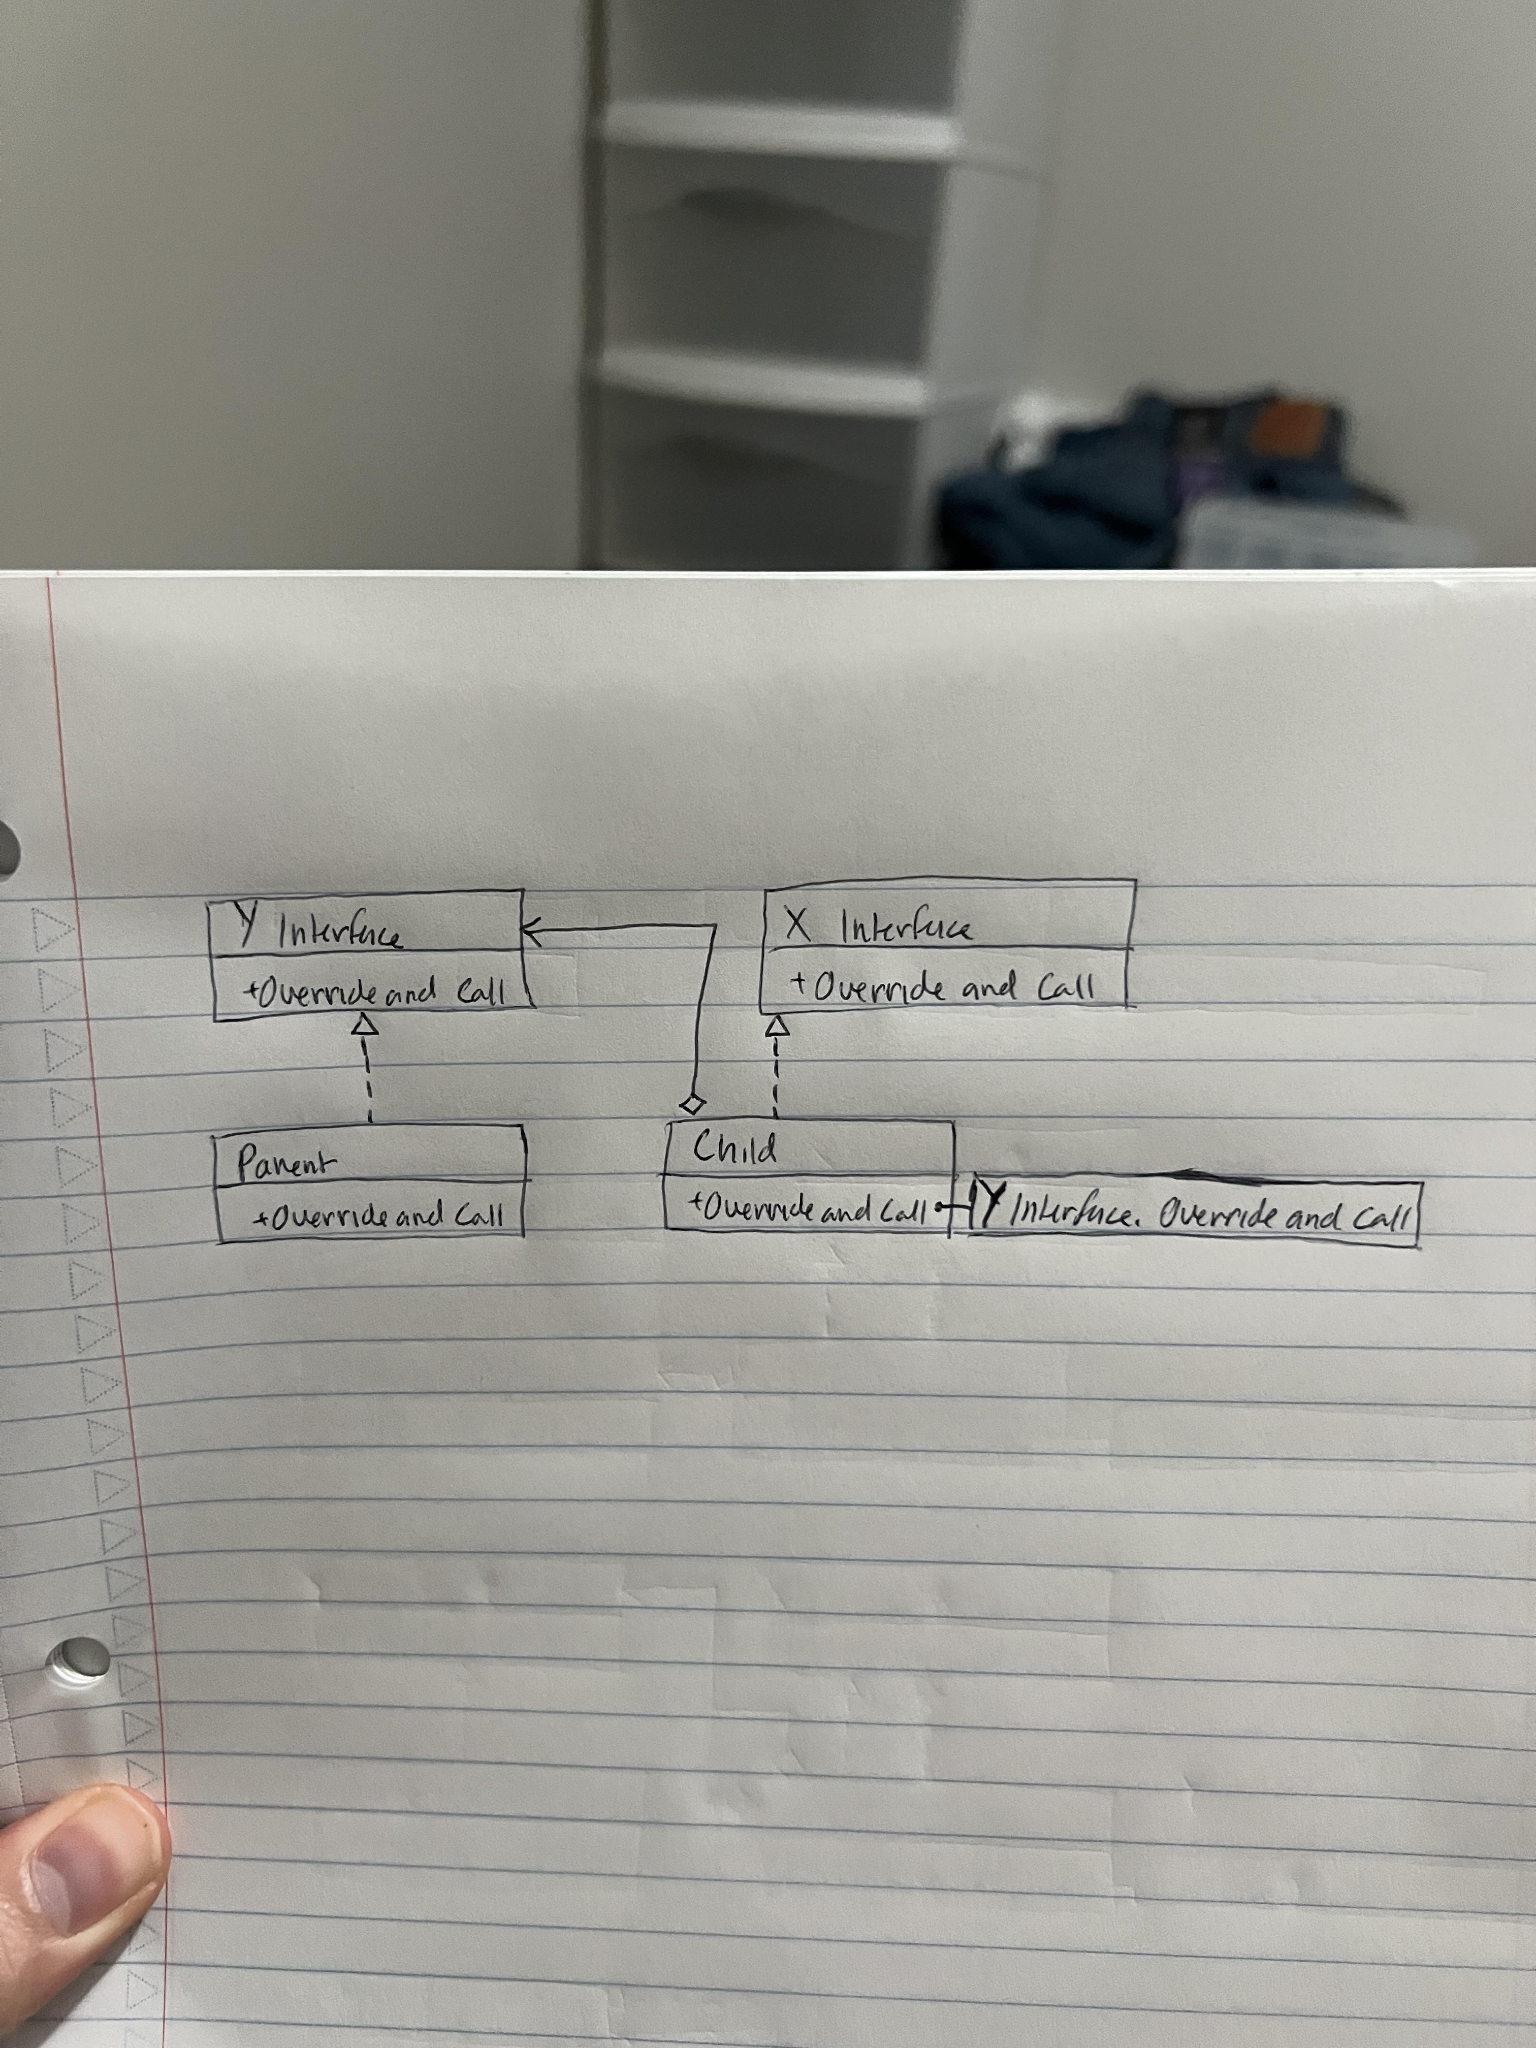 Y Interface
+Override and Call
X Interface
+ Override and Call
Parent
+Override and Call
Child
+Override and Call
Y Interface. Override and Call